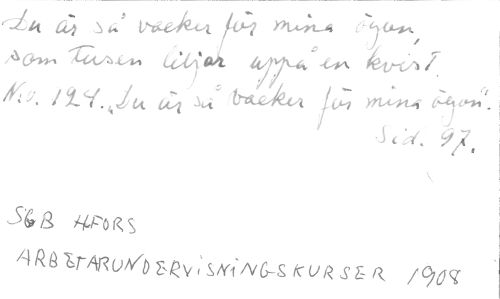 Du är så vacker för mina ögon,
som tusen liljor uppå en kvist.
No. 124. „Du är så vacker för mina ögon".
Sid. 97.
SGB HFORS
ARBETARUNDERVISNINGSKURSER 1908